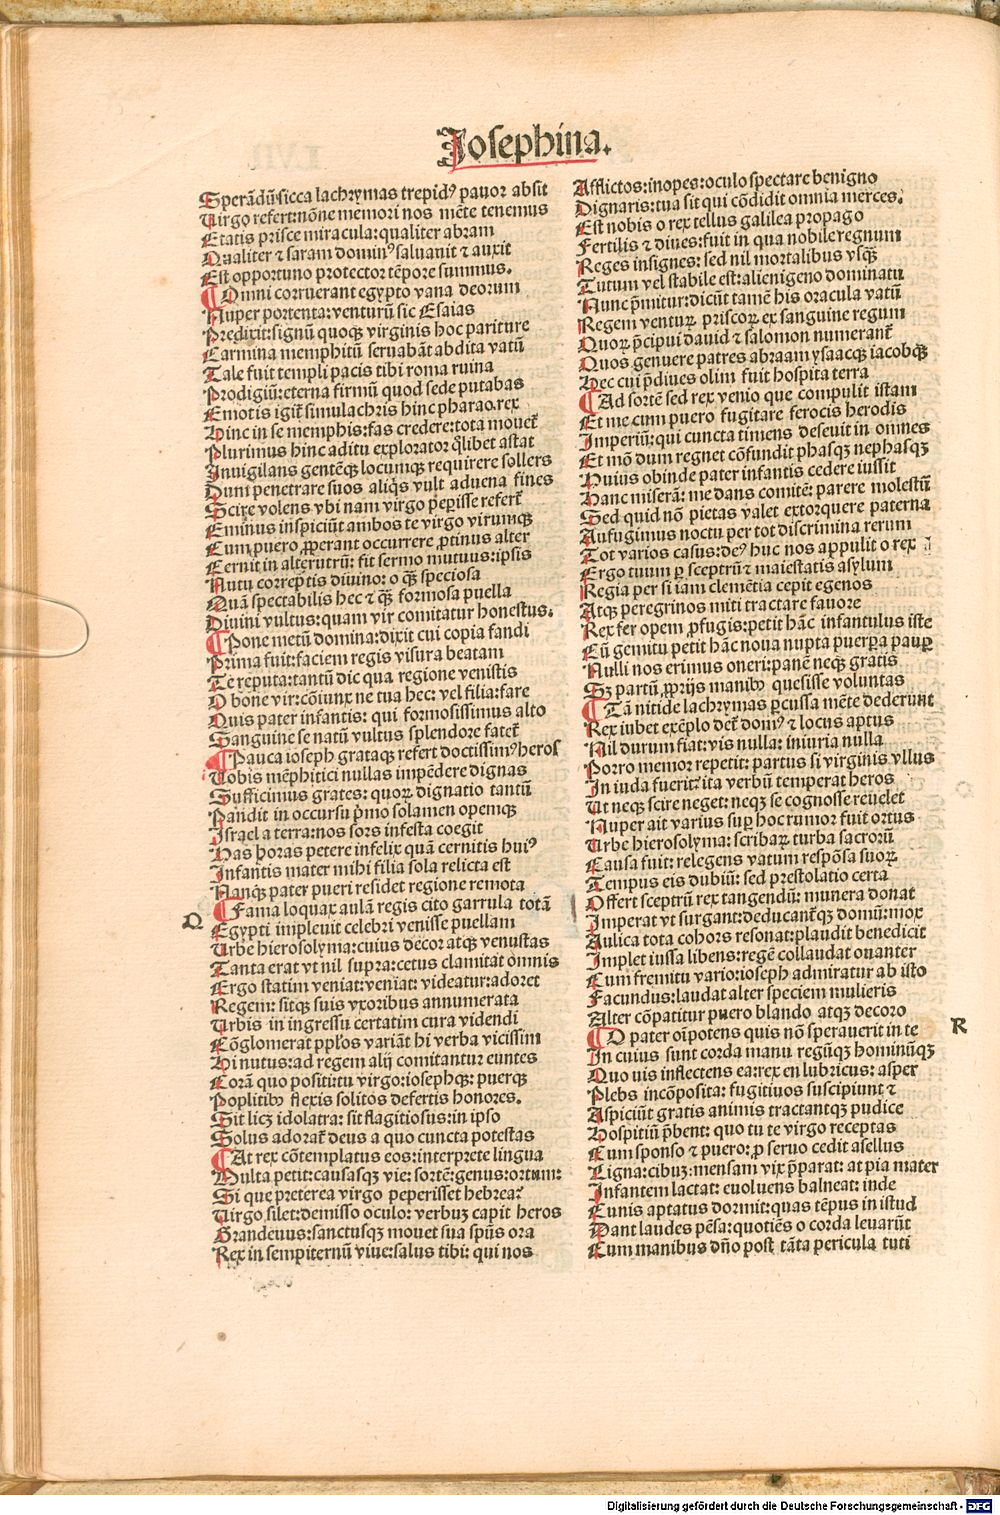 Josephina.
Sperādū:sicca lachrymas trepidꝰ pauor absit
Uirgo refert:nōne memori nos mēte tenemus
Etatis prisce miracula:qualiter abram
Qualiter ⁊ saram dominꝰ saluauit ⁊ auxit
Est opportuno protector tēpore summus.
¶ Omni corruerant egypto vana deorum
Nuper portenta:venturū sic Esaias
Predixit:signū quoqꝫ virginis hoc pariture
Carmina memphitū seruabāt abdita vatū
Tale fuit templi pacis tibi roma ruina
Prodigiū:eterna firmū quod sede putabas
Emotis igit̃ simulachris hinc pharao.rex
Hinc in se memphis:fas credere:tota mouet̃
Plurimus hinc aditu explorator q̄libet astat
Inuigilans gentēqꝫ locumqꝫ requirere sollers
Dum penetrare suos aliq̄s vult aduena fines
Scire volens vbi nam virgo peꝑisse refert̃
Eminus inspiciūt ambos te virgo virumqꝫ
Cum puero ꝓperant occurrere ꝓtinus alter
Cernit in alterutrū: fit sermo mutuus:ipsis
Nutu correptis diuino: o q̄ꝫ speciosa
Quā spectabilis hec ⁊ q̄ꝫ formosa puella
Diuini vultus:quam vir comitatur honestus.
¶ Pone metū domina:dixit cui copia fandi
Prima fuit:faciem regis visura beatam
Te reputa:tantū dic qua regione venistis
O bone vir:cōiunx ne tua hec: vel filia:fare
Quis pater infantis: qui formosissimus alto
Sanguine se natū vultus splendore fatet̃
¶ Pauca ioseph grataqꝫ refert doctissimꝰ heros
Uobis mēphitici nullas impēdere dignas
Sufficimus grates: quoꝝ dignatio tantū
Pandit in occursu p̄mo solamen opemqꝫ
Israel a terra:nos sors infesta coegit
Has horas petere infelix quā cernitis huiꝰ
Infantis mater mihi filia sola relicta est
Nanqꝫ pater pueri residet regione remota
Q
¶ Fama loquax aulā regis cito garrula totā
Egypti impleuit celebri venisse puellam
Urbe hierosolyma:cuius decor atqꝫ venustas
Tanta erat vt nil supra:cetus clamitat omnis
Ergo statim veniat:veniat: videatur:adoret
Regem: sitqꝫ suis vxoribus annumerata
Urbis in ingressu certatim cura videndi
Cōglomerat pp̄los variāt hi verba vicissim
Hi nutus:ad regem alij comitantur euntes
Corā quo positi:tu virgo:iosephqꝫ: puerqꝫ
Poplitibꝰ flexis solitos defertis honores.
Sit licꝫ idolatra: sit flagitiosus:in ipso
Solus adorat̃ deus a quo cuncta potestas
¶ At rex cōtemplatus eos:interprete lingua
Multa petit:causasqꝫ vie:sortē:genus:ortum:
Si que preterea virgo peperisset hebrea?
Uirgo silet:demisso oculo: verbuꝫ capit heros
Grandeuus:sanctusqꝫ mouet sua sp̄us ora
Rex in sempiternū viue:salus tibi: qui nos
Afflictos:inopes:oculo spectare benigno
Dignaris:tua sit qui cōdidit omnia merces.
Est nobis o rex tellus galilea propago
Fertilis ⁊ diues:fuit in qua nobile regnum
Reges insignes: sed nil mortalibus vsqꝫ
Tutum vel stabile est:alienigeno dominatu
Nunc p̄mitur:dicūt tamē his oracula vatū
Regem ventuꝝ priscoꝝ ex sanguine regum
Quoꝝ p̄cipui dauid ⁊ salomon numerant̃
Quos genuere patres abraam ysaacqꝫ iacobqꝫ
Hec cui p̄diues olim fuit hospita terra
¶ Ad sortē sed rex venio que compulit istam
Et me cum puero fugitare ferocis herodis
Imperiū:qui cuncta timens deseuit in omnes
Et mō dum regnet cōfundit phasqꝫ nephasqꝫ
Huius obinde pater infantis cedere iussit
Hanc miserā: me dans comitē: parere molestū
Sed quid nō pietas valet extorquere paterna
Aufugimus noctu per tot discrimina rerum
Tot varios casus:deꝰ huc nos appulit o rex
Ergo tuum ꝑ sceptrū ⁊ maiestatis asylum
Regia per si iam clemētia cepit egenos
Atqꝫ peregrinos miti tractare fauore
Rex fer opem ꝓfugis:petit hāc infantulus iste
Cū gemitu petit hāc noua nupta puerꝑa pauꝑ
Nulli nos erimus oneri:panē neqꝫ gratis
Sꝫ partū ꝓprijs manibꝰ quesisse voluntas
¶ Tā nitide lachrymas ꝑcussa mēte dederunt
Rex iubet exēplo det̃ domꝰ ⁊ locus aptus
Nil durum fiat:vis nulla: iniuria nulla
Porro memor repetit: partus si virginis vllus
In iuda fuerit? ita verbū temperat heros
Ut neqꝫ scire neget: neqꝫ se cognosse reuelet
Nuper ait varius suꝑ hoc rumor fuit ortus
Urbe hierosolyma: scribaꝝ turba sacrorū
Causa fuit: relegens vatum respōsa suoꝝ
Tempus eis dubiū: sed prestolatio certa
Offert sceptrū rex tangendū: munera donat
Imperat vt surgant:deducant̃qꝫ domū:mox
Aulica tota cohors resonat:plaudit benedicit
Implet iussa libens:regē collaudat ouanter
Cum fremitu vario:ioseph admiratur ab isto
Facundus:laudat alter speciem mulieris
Alter cōpatitur puero blando atqꝫ decoro
R
¶ O pater oīpotens quis nō sperauerit in te
In cuius sunt corda manu regūqꝫ hominūqꝫ
Quo uis inflectens ea:rex en lubricus: asper
Plebs incōposita: fugitiuos suscipiunt ⁊
Aspiciūt gratis animis tractantqꝫ pudice
Hospitiū p̄bent: quo tu te virgo receptas
Cum sponso ⁊ puero: ꝓ seruo cedit asellus
Ligna:cibuꝫ:mensam vix p̄parat: at pia mater
Infantem lactat: euoluens balneat: inde
Cunis aptatus dormit:quas tēpus in istud
Dant laudes pēsa:quotiēs o corda leuarūt
Cum manibus dn̄o post tāta pericula tuti
Digitalisierung gefördert durch die Deutsche Forschungsgemeinschaft - DFG